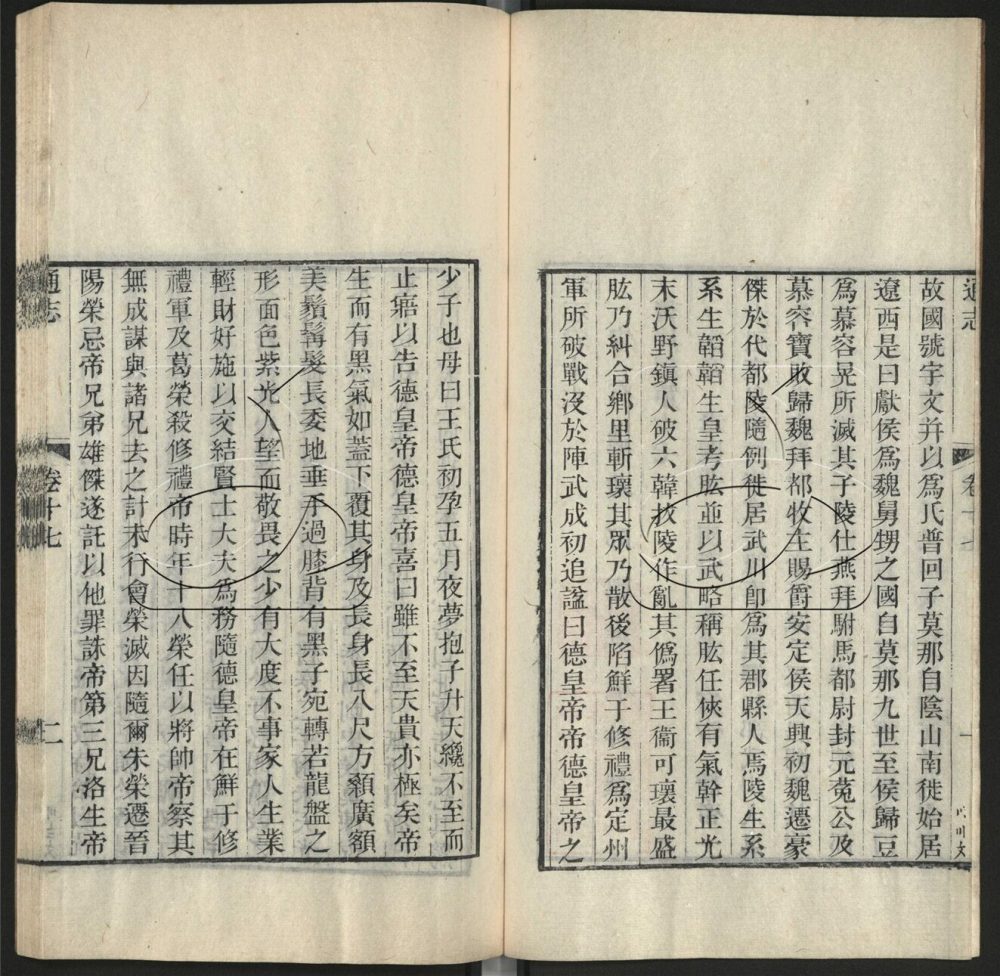 通志
卷十
一
故國號宇文并以爲氏普回子莫那自陰山南徙始居
遼西是曰獻侯爲魏舅甥之國自莫那九世至侯歸豆
爲慕容晃所滅其子陵仕燕拜駙馬都尉封元菟公及
慕容寶敗歸魏拜都牧主賜爵安定侯天興初魏遷豪
傑於代都陵隨例徙居武川卽爲其郡縣人焉陵生系
系生韜韜生皇考肱並以武略稱肱任俠有氣幹正光
末沃野鎮人破六韓拔陵作亂其僞署王衞可瓌最盛
肱乃糾合鄉里斬瓌其眾乃散後陷鮮于修禮爲定州
軍所破戰沒於陣武成初追諡曰德皇帝帝德皇帝之
少子也母曰王氏初孕五月夜夢抱子升天纔不至而
止寤以告德皇帝德皇帝喜曰雖不至天貴亦極矣帝
生而有黑氣如蓋下覆其身及長身長八尺方顙廣額
美鬚髯髮長委地垂手過膝背有黑子宛轉若龍盤之
形面色紫光人望而敬畏之少有大度不事家人生業
輕財好施以交結賢士大夫爲務隨德皇帝在鮮于修
禮軍及葛榮殺修禮帝時年十八榮任以將帥帝察其
無成謀與諸兄去之計未行會榮滅因隨爾朱榮遷晉
陽榮忌帝兄弟雄傑遂託以他罪誅帝第三兄洛生帝
通志
卷十七
二